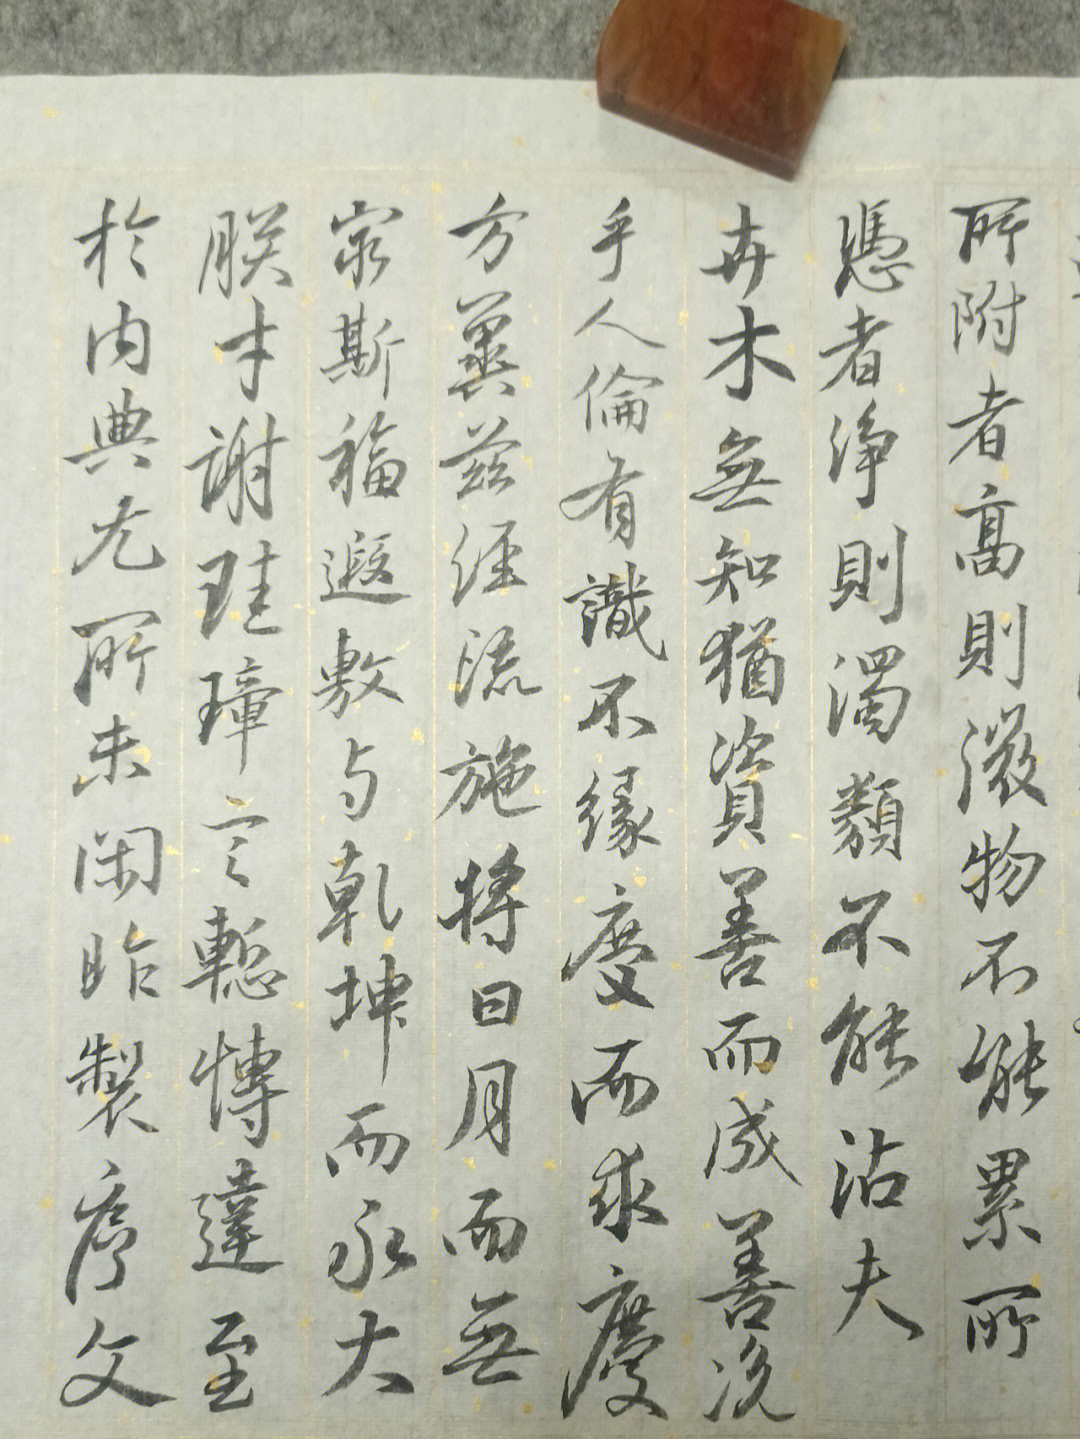 所附者高則微物不能累所
憑者浄則濁類不能沾夫
卉木無知猶資善而成善況
乎人倫有識不緣慶而求慶
方冀茲經流施將日月而無
窮斯福遐敷与乾坤而永大
朕才謝珪璋言慙博達至
於内典尤所未閑昨製序文